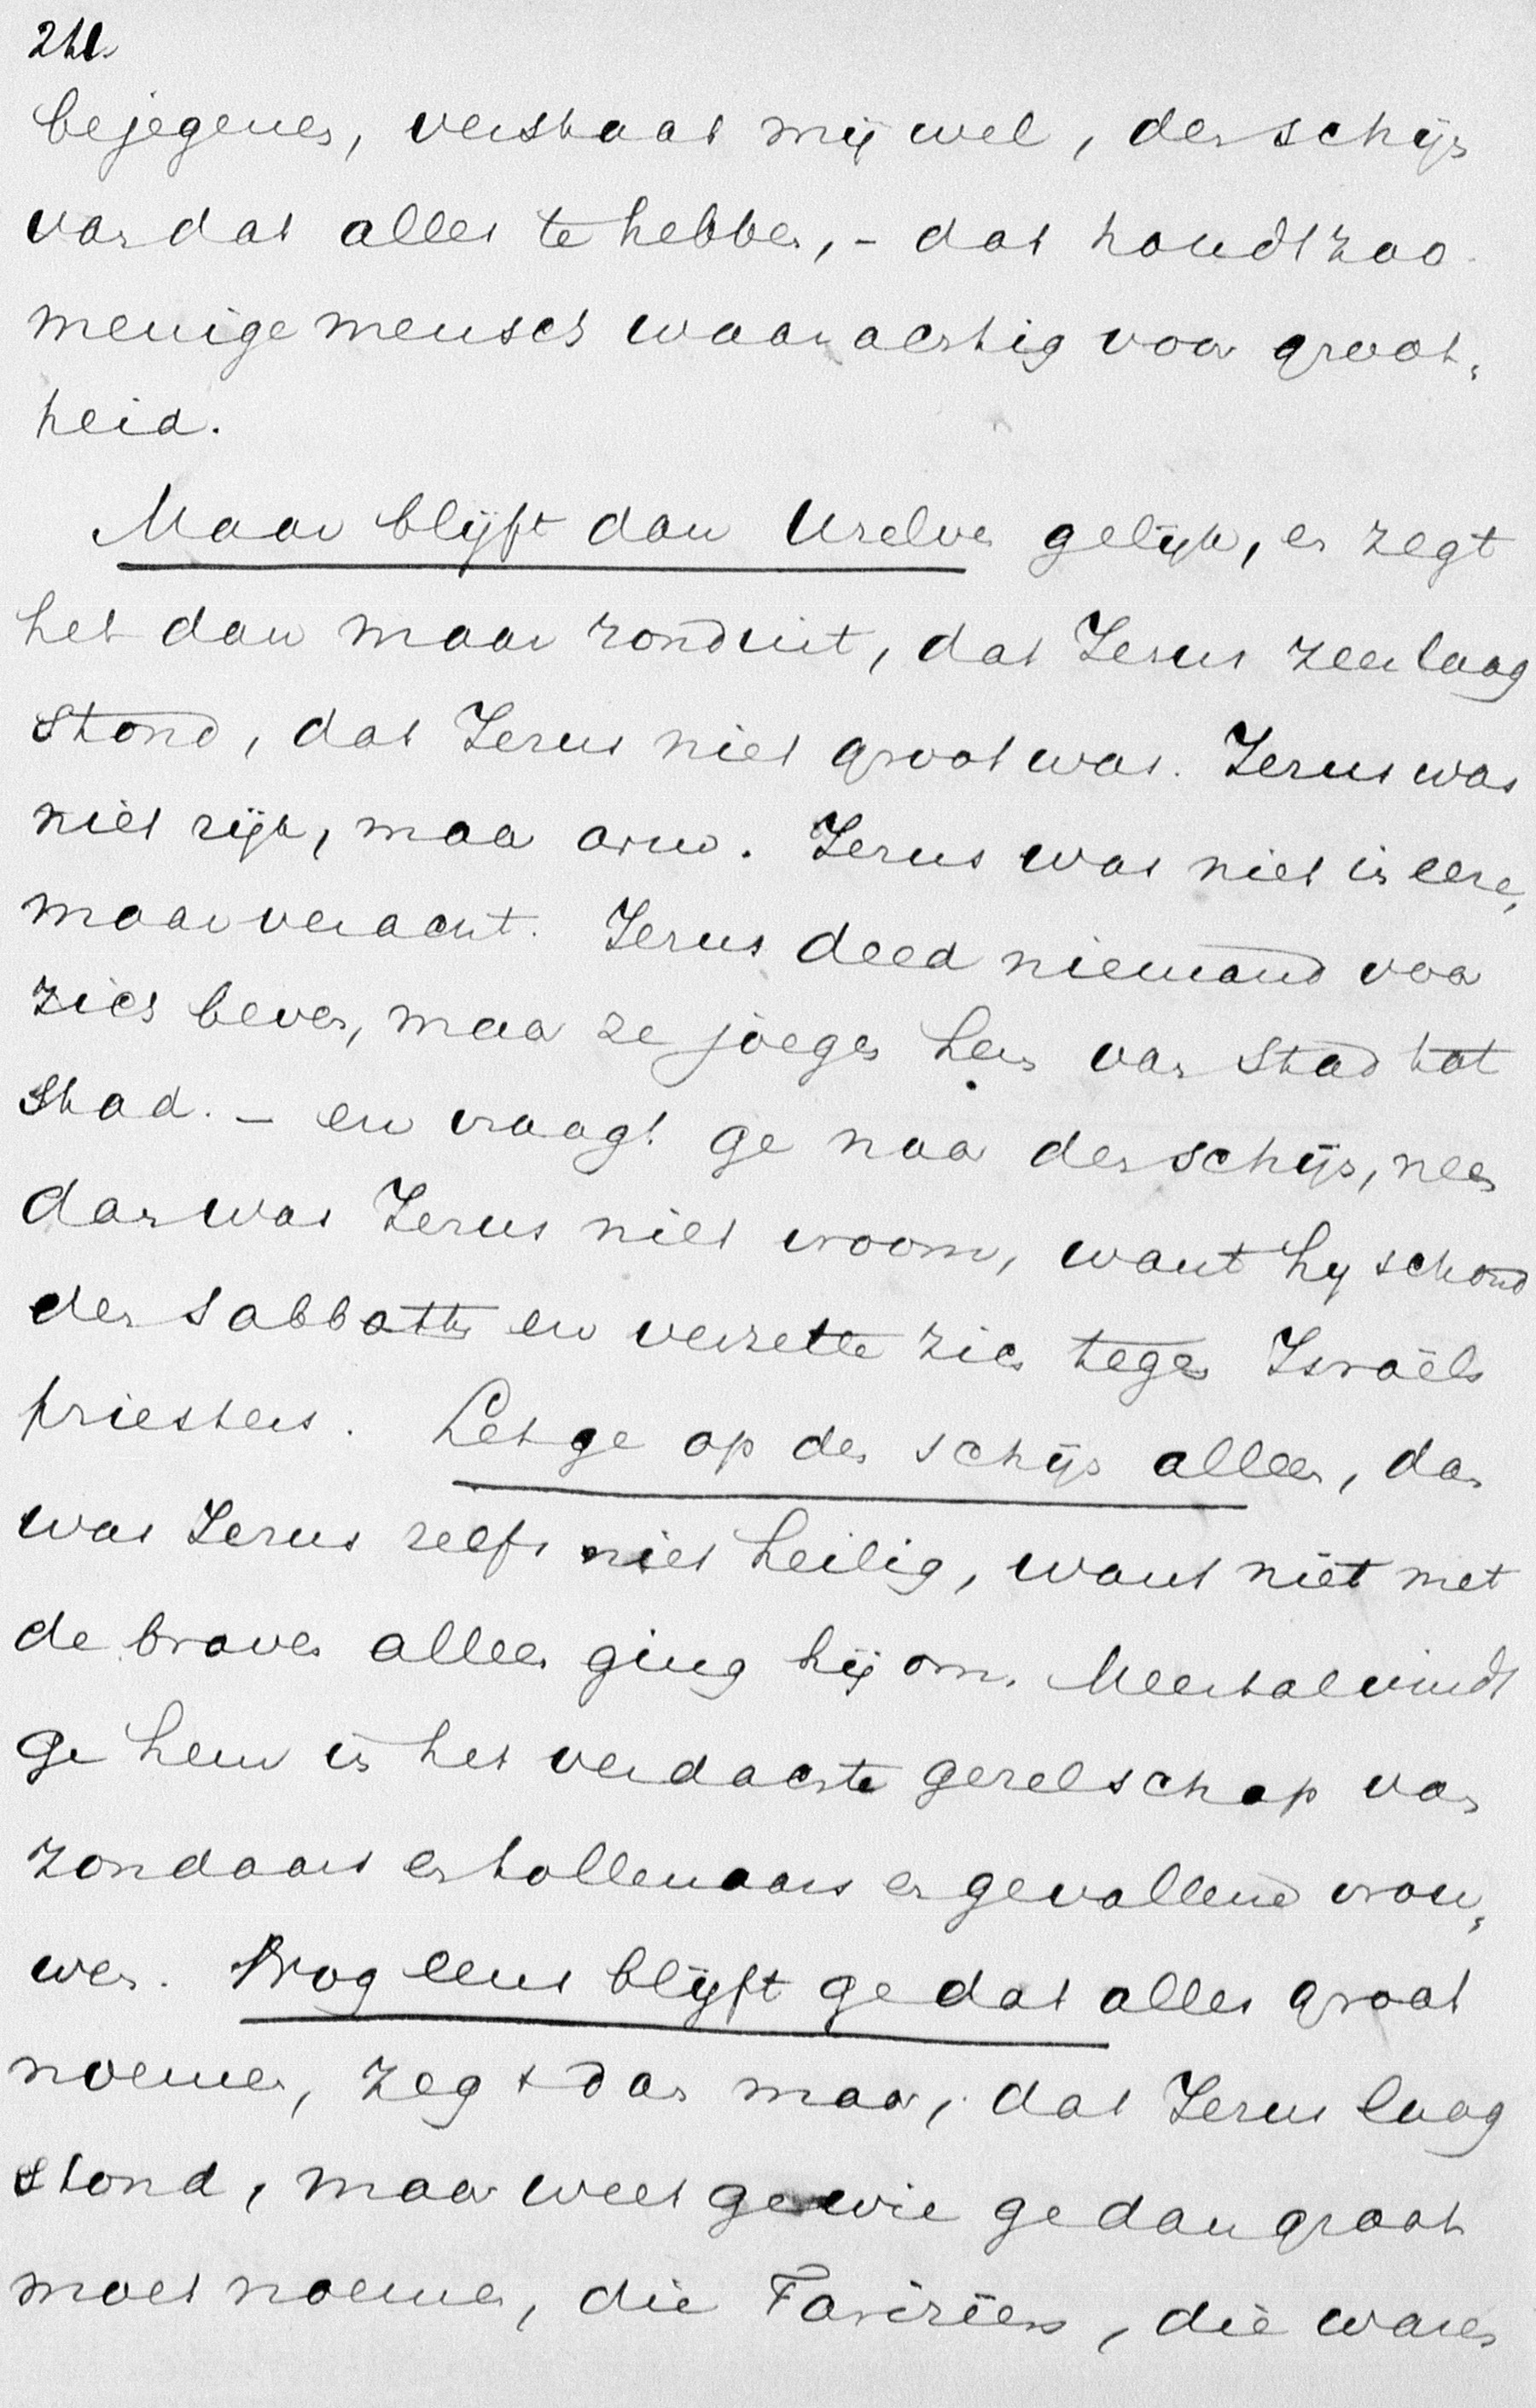 bejegenen, verstaat mij wel, den schijn
van dat alles te hebben, - dat houdt zoo
menige mensch waarachtig voor groot-
heid.
Maar blijft dan Uzelven gelijk, en zegt
het dan maar ronduit, dat Jezus zeer laag
stond, dat Jezus niet groot was. Jezus was
niet rijk, maar arm. Jezus was niet in eere,
maar veracht. Jezus deed niemand voor
zich beven, maar ze joegen hem van stad tot
stad. - en vraagt ge naar den schijn, neen
dan was Jezus niet vroom, want hij schond
den sabbatth en verzette zich tegen Israëls
priesters. Let ge op den schijn alleen, dan
was Jezus zelfs niet heilig, want niet met
de braven alleen ging hij om. Meestal vindt
ge hem in het verdachte gezelschap van
zondaars en tollenaars en gevallene vrou-
wen. Nog eens blijft ge dat alles groot
noemen, zegt dan maar, dat Jezus laag
stond, maar weet ge wie ge dan groot
moet noemen, die Farizëen, die waren